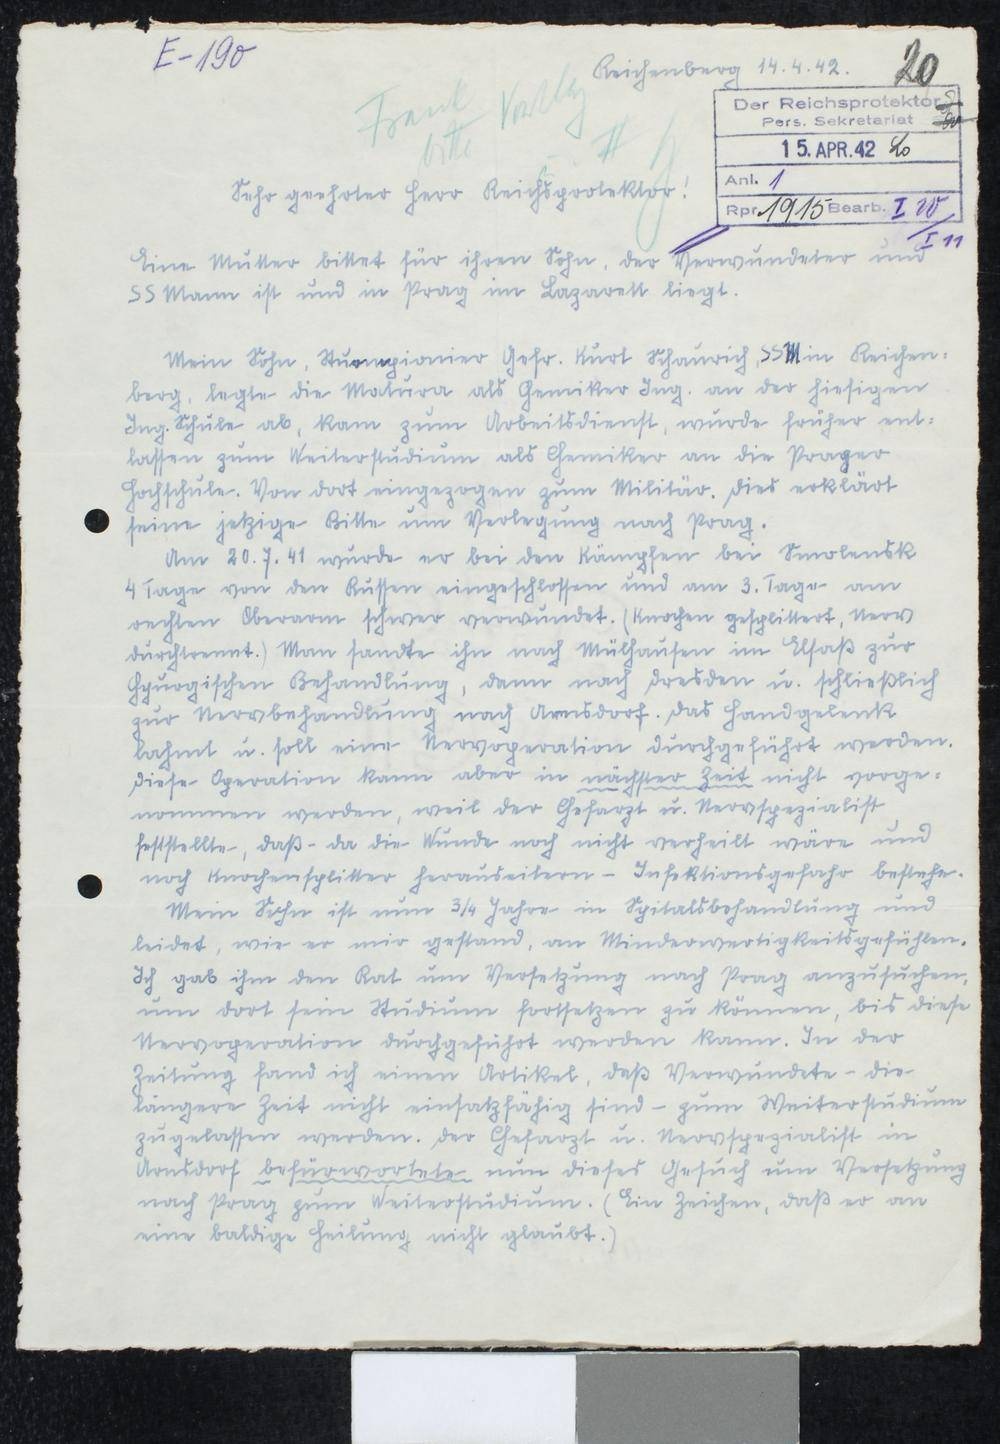 E-190
Reichenberg 14.4.42.
20
Frank
bitte
Der Reichsprotektor
Pers. Sekretariat
15. APR. 42
Anl. 1
Rpr. 1915 Bearb. I 10
I 11
Sehr geehrter Herr Reichsprotektor!
Eine Mutter bittet für ihren Sohn, der Verwundeter und
SS Mann ist und in Prag im Lazarett liegt.
Mein Sohn, Sturmpionier Gefr. Kurt Schaurich, SS M in Reichen=
berg, legte die Matura als Chemiker Ing. an der hiesigen
Ing. Schule ab, kam zum Arbeitsdienst, wurde früher ent=
lassen zum Weiterstudium als Chemiker an die Prager
Hochschule. Von dort eingezogen zum Militär. Dies erklärt
seine jetzige Bitte um Verlegung nach Prag.
Am 20.7.41 wurde er bei den Kämpfen bei Smolensk
4 Tage von den Russen eingeschlossen und am 3. Tage am
rechten Oberarm schwer verwundet. (Knochen gesplittert, Nerv
durchtrennt.) Man sandte ihn nach Mülhausen im Elsaß zur
Chyurgischen Behandlung, dann nach Dresden u. schließlich
zur Nervbehandlung nach Arnsdorf. Das Handgelenk
lahmt u. soll eine Nervoperation durchgeführt werden.
Diese Operation kann aber in nächster Zeit nicht vorge=
nommen werden, weil der Chefarzt u. Nervspezialist
feststellte, daß - da die Wunde noch nicht verheilt wäre und
noch Knochensplitter herauseitern - Infektionsgefahr bestehe.
Mein Sohn ist nun 3/4 Jahre in Spitalsbehandlung und
leidet, wie er mir gestand, an Minderwertigkeitsgefühlen.
Ich gab ihm den Rat um Versetzung nach Prag anzusuchen,
um dort sein Studium fortsetzen zu können, bis diese
Nervoperation durchgeführt werden kann. In der
Zeitung fand ich einen Artikel, daß Verwundete - die
längere Zeit nicht einsatzfähig sind - zum Weiterstudium
zugelassen werden. Der Chefarzt u. Nervspezialist in
Arnsdorf befürwortete nun dieses Gesuch um Versetzung
nach Prag zum Weiterstudium. (Ein Zeichen, daß er an
eine baldige Heilung nicht glaubt.)